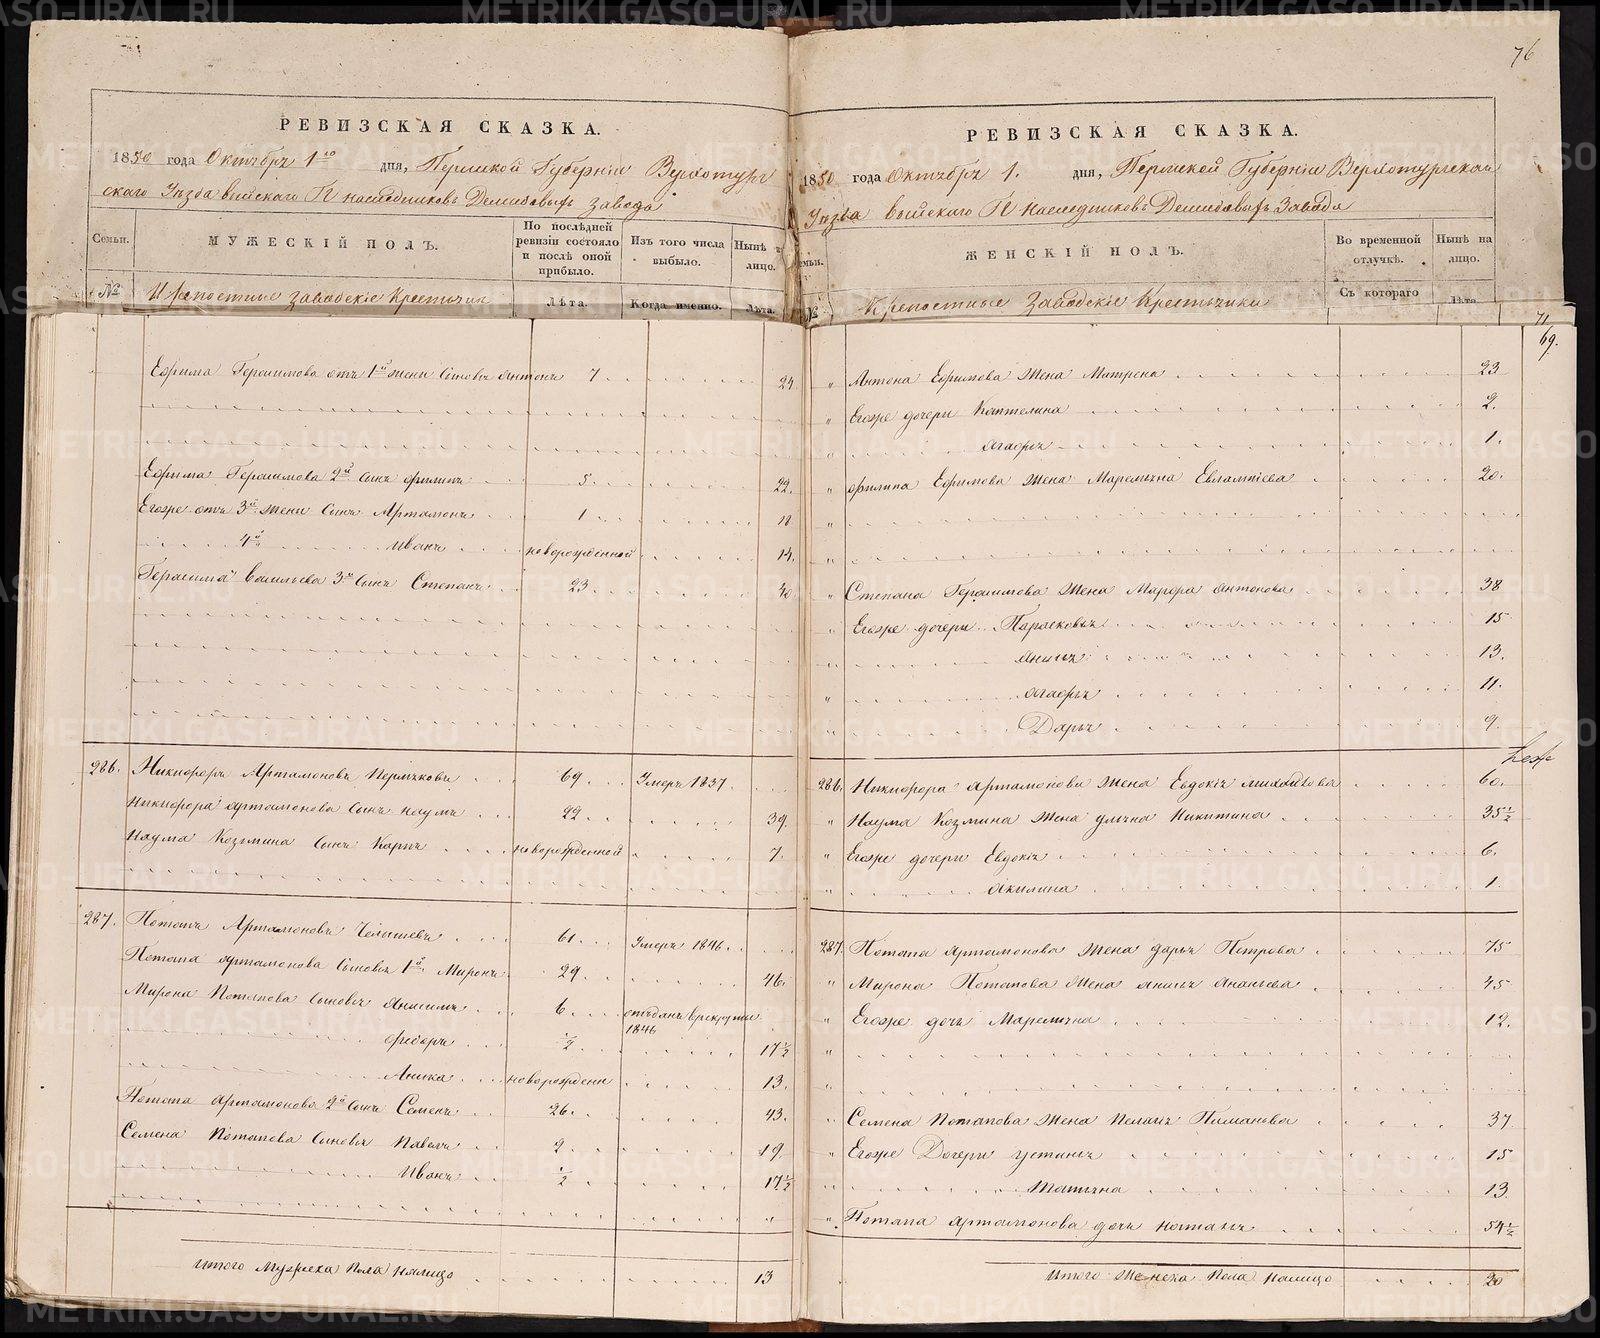 76
РЕВИЗСКАЯ СКАЗКА.
1850 года Октября 1го дня, Пермской Губернiи Верхотур
скаго Уезда Выйскаго Гг наследниковъ Демидовыхъ завода
Семьи.
МУЖЕСКIЙ ПОЛЪ.
По последней ревизiи состояло и после оной прибыло.
Изъ того числа выбыло.
Ныне на лицо.
№
Крепостные заводскiе Крестьяне
Лѣта.
Когда именно.
Лѣта.
Ефима Герасимова отъ 1й жены сыновья Антонъ 7 24
Ефима Герасимова 2й сынъ Филипъ 5 22.
Егоже отъ 3й жены Сынъ Артамонъ 1 18
4й Иванъ новорожденной 14.
Герасима Васильева 3й Сынъ Степанъ 23 40
286. Никифоръ Артамоновъ Пермяковъ 69 Умеръ 1837
Никифора Артамонова Сынъ Наумъ 22 39.
Наума Козмина Сынъ Карпъ новорожденной 7.
287. Потапъ Артамоновъ Челышевъ 61 Умеръ 1846.
Потапа Артамонова Сыновья 1й Миронъ 29 46.
Мирона Потапова Сыновья Анисимъ 6 отданъ в рекруты 1846
Федоръ ½ 17½
Аника новорожденн 13.
Потапа Артамонова 2й Сынъ Семенъ 26. 43.
Семена Потапова Сыновья Павелъ 2 19.
Иванъ ½ 17½
Итого Мужеска Пола налицо 13
РЕВИЗСКАЯ СКАЗКА.
1850 года Октября 1. дня, Пермской Губернiи Верхотурскаго
Уезда Выйскаго Гг Наследниковъ Демидовыхъ Завода
Семьи.
ЖЕНСКIЙ ПОЛЪ.
Во временной отлучкѣ.
Ныне на лицо.
№
Крепостные Заводскiе Крестьянки
Съ котораго
Лѣта
71
69.
" Антона Ефимова Жена Матрена 23
" Егоже дочери Каптелина 2.
" Агафья 1.
" Филипа Ефимова Жена Маремьяна Евлампiева 20.
" Степана Герасимова Жена Марфа Антонова 38
" Егоже дочери Парасковья 15
" Анисья 13.
" Агафья 11.
" Дарья 9.
286. Никифора Артамонова Жена Евдокiя Михайлова 60.
" Наума Козмина Жена Ульяна Никитина 35½
" Егоже дочери Евдокiя 6.
" Акилина 1
287. Потапа Артамонова Жена Дарья Петрова 75
" Мирона Потапова Жена Анисья Ананьева 45
" Егоже дочь Маремьяна 12.
" Семена Потапова Жена Пелагея Пиманова 37
" Егоже Дочери Устинья 15
" Татьяна 13
" Потапа Артамонова дочь Наталья 54½
Итого Женска Пола налицо 20
METRIKI.GASO-URAL.RU